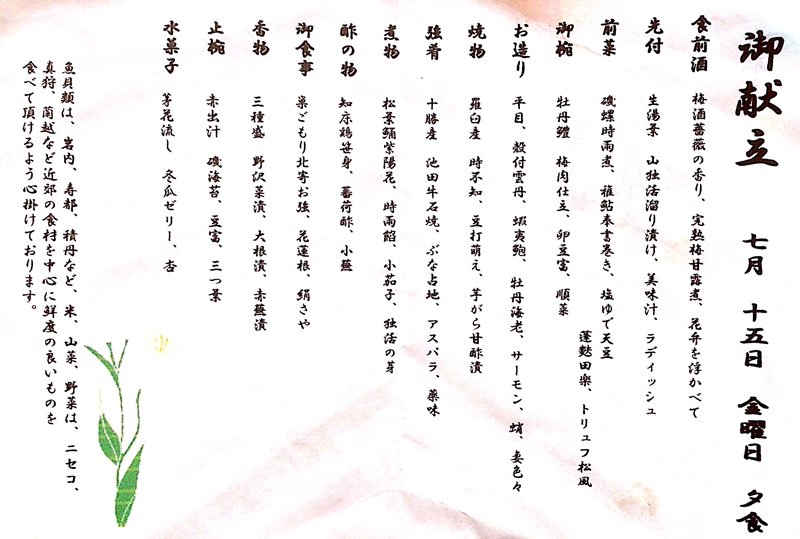 御献立 七月 十五日 金曜日 夕食
食前酒 梅酒薔薇の香り、完熟梅甘露煮、花弁を浮かべて
先付 生湯葉 山独活溜り漬け、美味汁、ラディッシュ
前菜 磯螺時雨煮、稚鮎奉書巻き、塩ゆで天豆
蓬麩田楽、トリュフ松風
御椀 牡丹鱧 梅肉仕立、卵豆富、順菜
お造り 平目、殻付雲丹、蝦夷鮑、牡丹海老、サーモン、蛸、妻色々
焼物 羅臼産 時不知、豆打萌え、芋がら甘酢漬
強肴 十勝産 池田牛石焼、ぶな占地、アスパラ、薬味
煮物 松葉蟹紫陽花、時雨餡、小茄子、独活の芽
酢の物 知床鶏笹身、蕃荷酢、小蕪
御食事 巣ごもり北寄お強、花蓮根、絹さや
香物 三種盛 野沢菜漬、大根漬、赤蕪漬
止椀 赤出汁 磯海苔、豆富、三つ葉
水菓子 茅花流し 冬瓜ゼリー、杏
魚貝類は、岩内、寿都、積丹など、米、山菜、野菜は、ニセコ、
真狩、蘭越など近郊の食材を中心に鮮度の良いものを
食べて頂けるよう心掛けております。